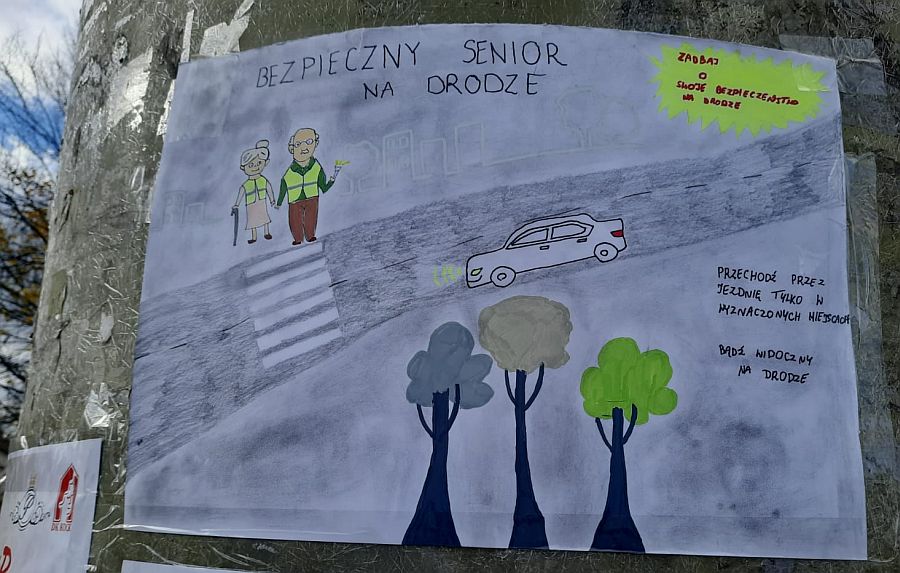 BEZPIECZNY SENIOR
NA DRODZE
ZADBAJ
O
SWOJE BEZPIECZEŃSTWO
NA DRODZE
PRZECHODŹ PRZEZ
JEZDNIĘ TYLKO W
WYZNACZONYCH MIEJSCACH
BĄDŹ WIDOCZNY
NA DRODZE